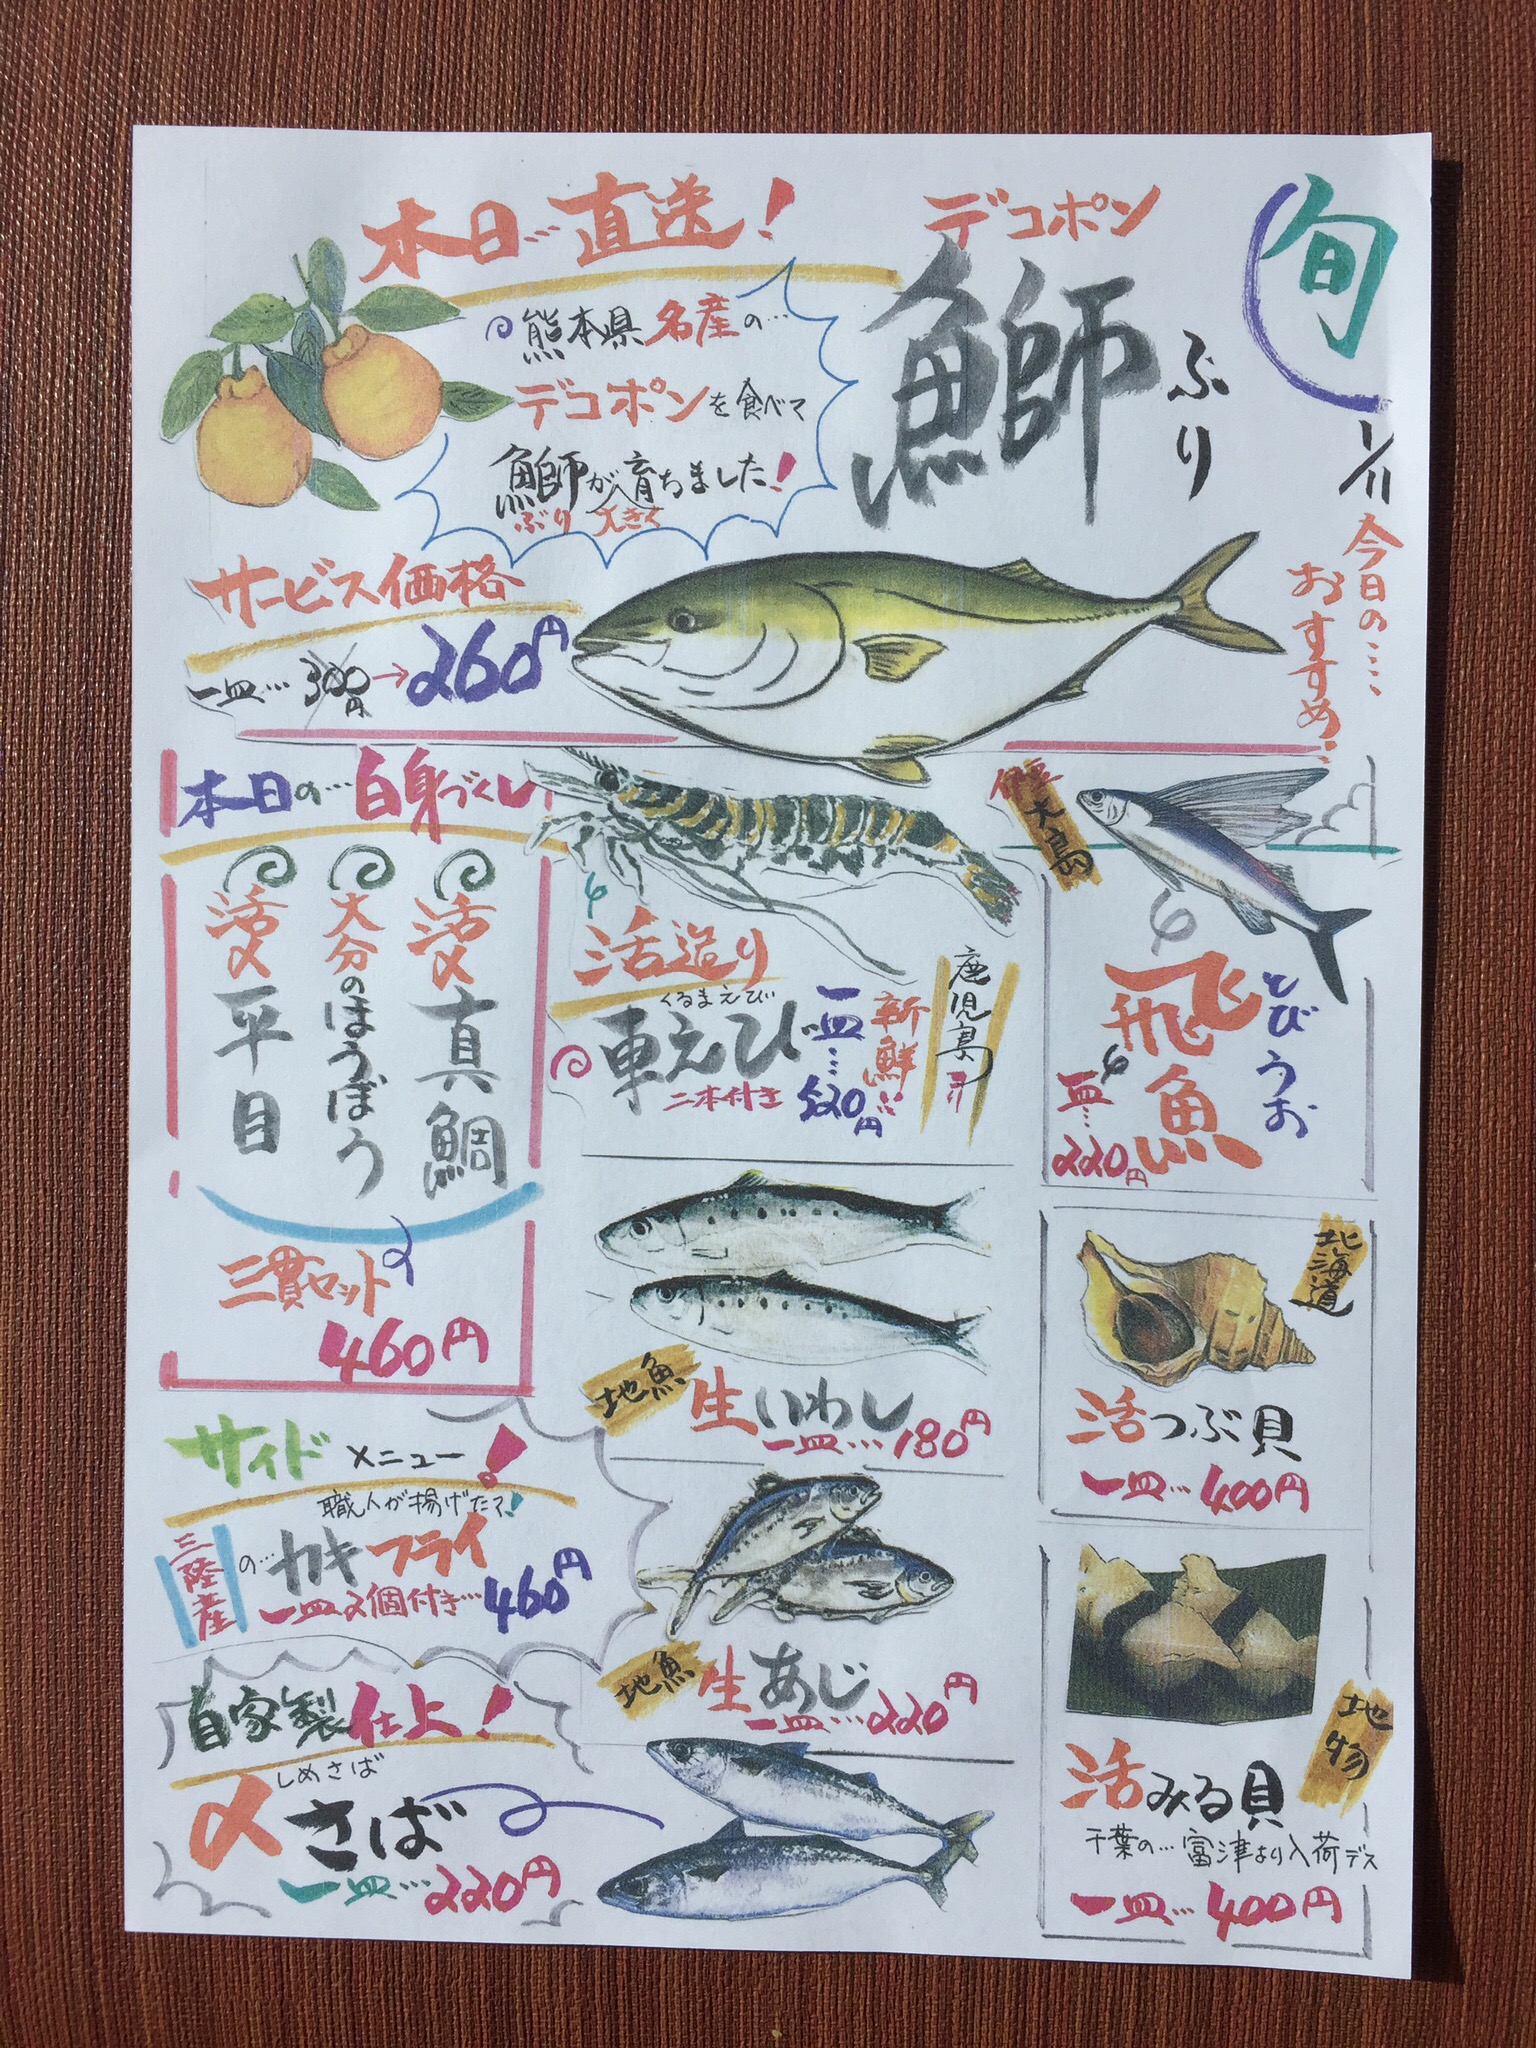 旬
1/11
今日の…
おすすめ!
本日…直送!
デコポン
鰤
ぶり
熊本県名産の…
デコポンを食べて
鰤が大きく育ちました!
ぶり
サービス価格
一皿…300円→260円
本日の…白身づくし
活〆真鯛
大分のほうぼう
活〆平目
三貫セット
460円
活造り
くるまえび
車えび
二本付き
一皿…520円
新鮮!!
鹿児島
伊豆大島
飛魚
とびうお
一皿…220円
地魚
生いわし
一皿…180円
北海道
活つぶ貝
一皿…400円
サイドメニュー!
職人が揚げたて!
三陸産の…カキフライ
一皿2個付き…460円
地魚
生あじ
一皿…220円
地物
活みる貝
千葉の…富津より入荷デス
一皿…400円
自家製仕上!
しめさば
〆さば
一皿…220円